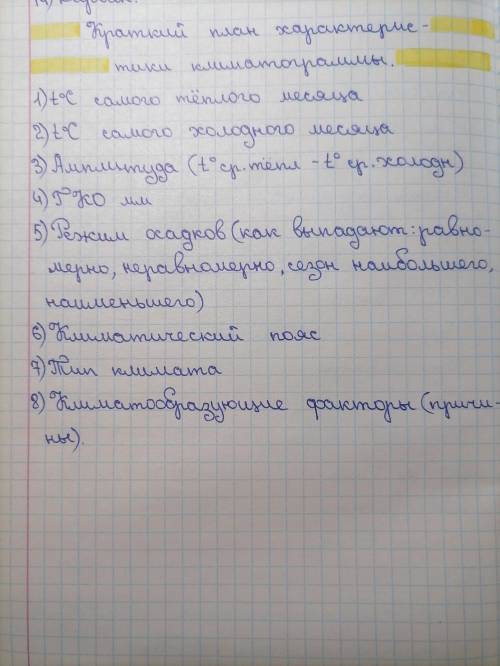 Краткий план характерис-
тики климатограммы.
1) t°C самого тёплого месяца
2) t°C самого холодного месяца
3) Амплитуда (t° ср.тепл - t° ср.холодн)
4) ГКО мм
5) Режим осадков (как выпадают: равно-
мерно, неравномерно, сезон наибольшего,
наименьшего)
6) Климатический пояс
7) Тип климата
8) Климатообразующие факторы (причи-
ны).